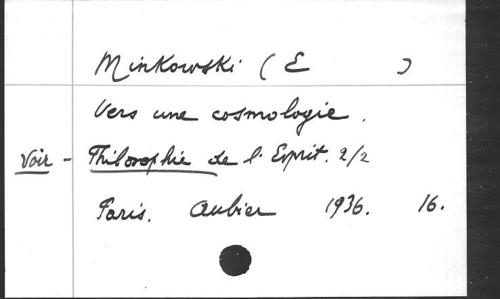 Minkowski ( E )
Vers une cosmologie.
Voir - Philosophie de l'Esprit. 2/2
Paris. Aubier 1936. 16.